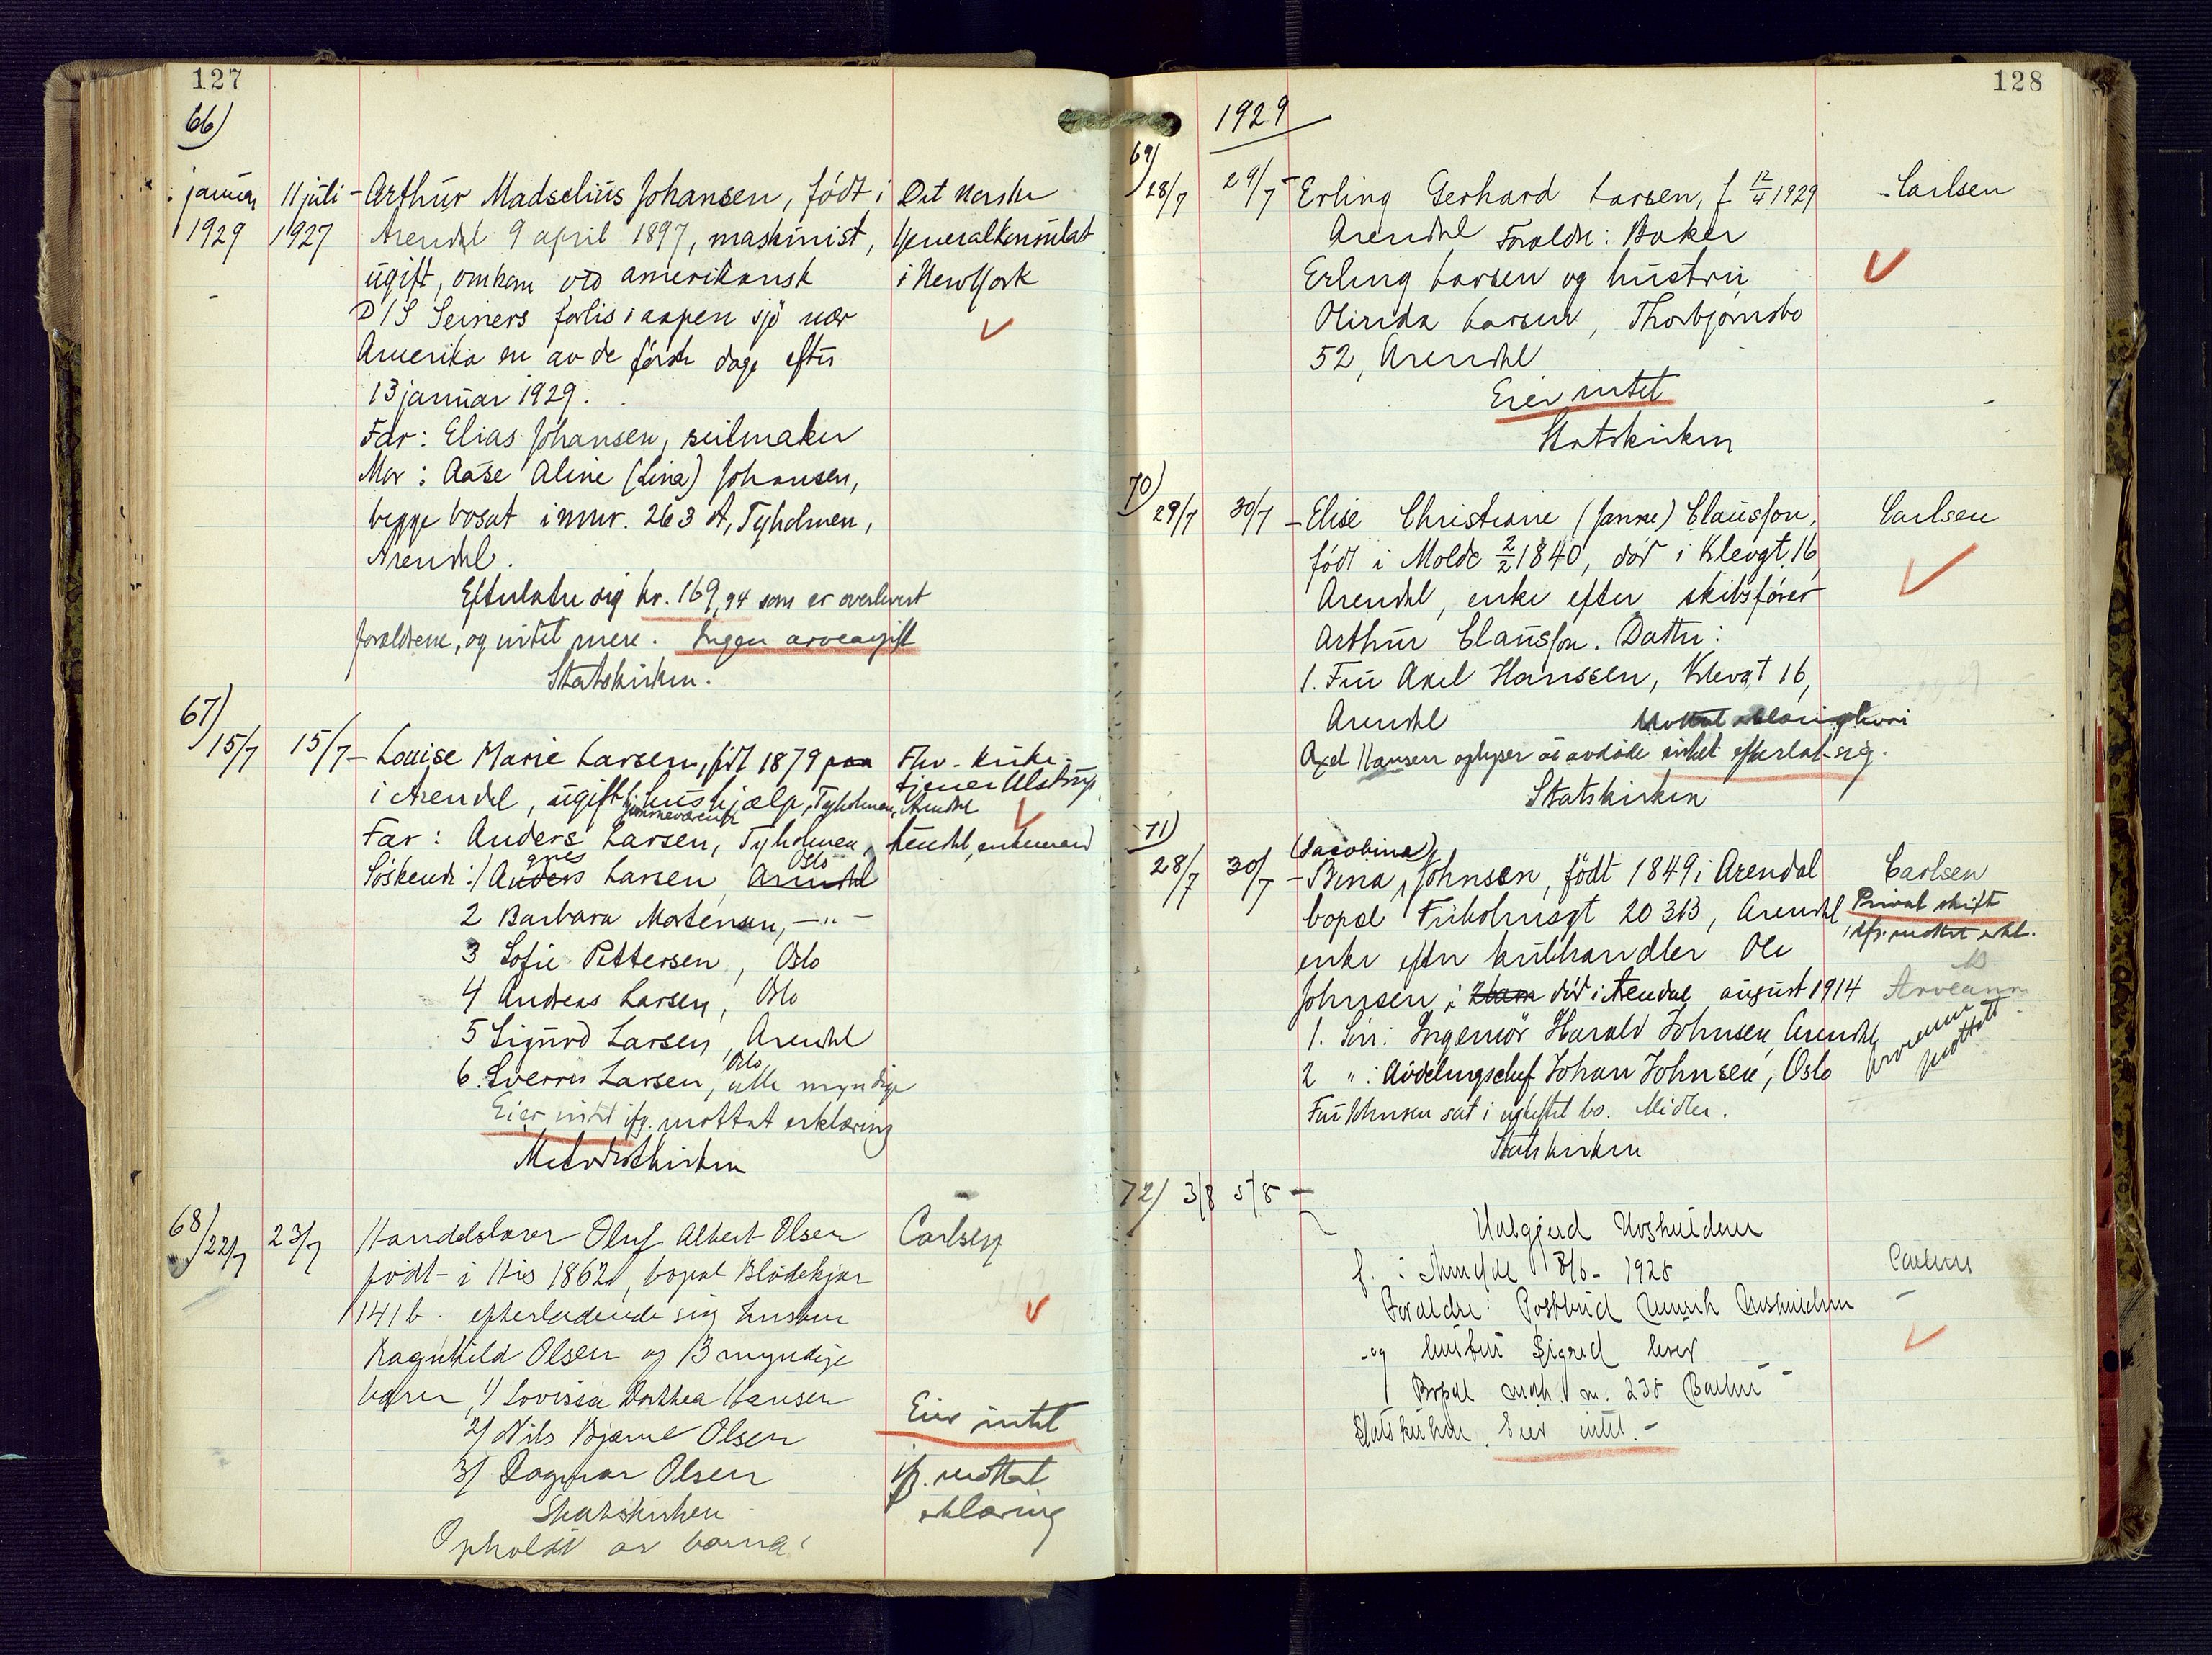 127
66)
januar 11 juli - Arthur Madselius Johansen, født i Det Norske
1929 1927 Arendal 9 april 1897, maskinist, Generalkonsulat
ugift, omkom ved amerikansk i New York
D/S Seiners forlis i aapen sjø nær
Amerika en av de første dage efter
13 januar 1929.
Far: Elias Johansen, seilmaker
Mor: Aase Aline (Lina) Johansen,
begge bosat i mnr. 263 A, Tyholmen,
Arendal.
Efterlater sig kr. 169,94 som er overlevert
forældrene, og intet mere. Ingen arveavgift
Statskirken.
67)
15/7 15/7 - Louise Marie Larsen, født 1879 paa Fhv. kirke-
i Arendal, ugift hjemmeværende hushjælp, Tyholmen, tjener Ulstrup, Arendal
Far: Anders Larsen, Tyholmen, Arendal, enkemand
Søskende: 1 Anders gnes Larsen, Arendal Oslo
2 Barbara Mortensen, -"-
3 Sofie Pettersen, Oslo
4 Andreas Larsen, Oslo
5 Sigurd Larsen, Arendal
6. Sverre Larsen, Oslo, alle myndige
Eier intet ifg. mottat erklæring
Metodistkirken
68)
22/7 23/7 Handelslærer Oluf Albert Olsen Carlsen
født i His 1862, bopæl Blødekjær
141 b. efterladende sig hustru
Ragnhild Olsen og 3 myndige
barn, 1/ Lovisa Dorthea Hansen
2/ Nils Bjarne Olsen Eier intet
3/ Dagmar Olsen ifg. mottat
Statskirken erklæring
Opholdt av barna.
128
1929
69)
28/7 29/7 - Erling Gerhard Larsen, f 12/4 1929 - Carlsen
Arendal Forældre: Baker
Erling Larsen og hustru
Olinda Larsen, Thorbjørnsbo
52, Arendal
Eier intet
Statskirken
70)
29/7 30/7 - Elise Christiane (Janne) Clausson, Carlsen
født i Molde 2/2 1840, død i Klevgt. 16,
Arendal, enke efter skibsfører
Arthur Clausson. Datter:
1. Fru Axel Hanssen, Klevgt 16,
Arendal Mottat erklæring
Axel Hansen oplyser at avdøde intet efterlot sig.
Statskirken
71)
(Jacobina)
28/7 30/7 - Bina Johnsen, født 1849 i Arendal Carlsen
bopæl Friholmsgt 20 313, Arendal Privat skift
enke efter kulhandler Ole ifg. mottat erkl.
Johnsen, i død i Arendal august 1914
1. Søn: Ingeniør Harald Johnsen, Arendal Arveanm
2 ": Avdelingschef Johan Johnsen, Oslo mottatt
Fru Johnsen sat i uskiftet bo. Midler.
Statskirken
72) 3/8 5/8 -
f. i Arendal 8/6 - 1928 Carlsen
Forældre: Postbud
og hustru Sigrid
Bopæl
Statskirken. Eier intet. -